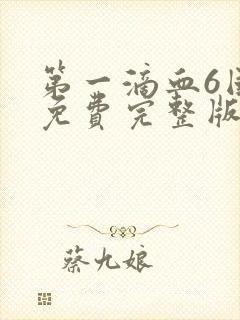 第一滴血6国
免费完整版
蔡九娘